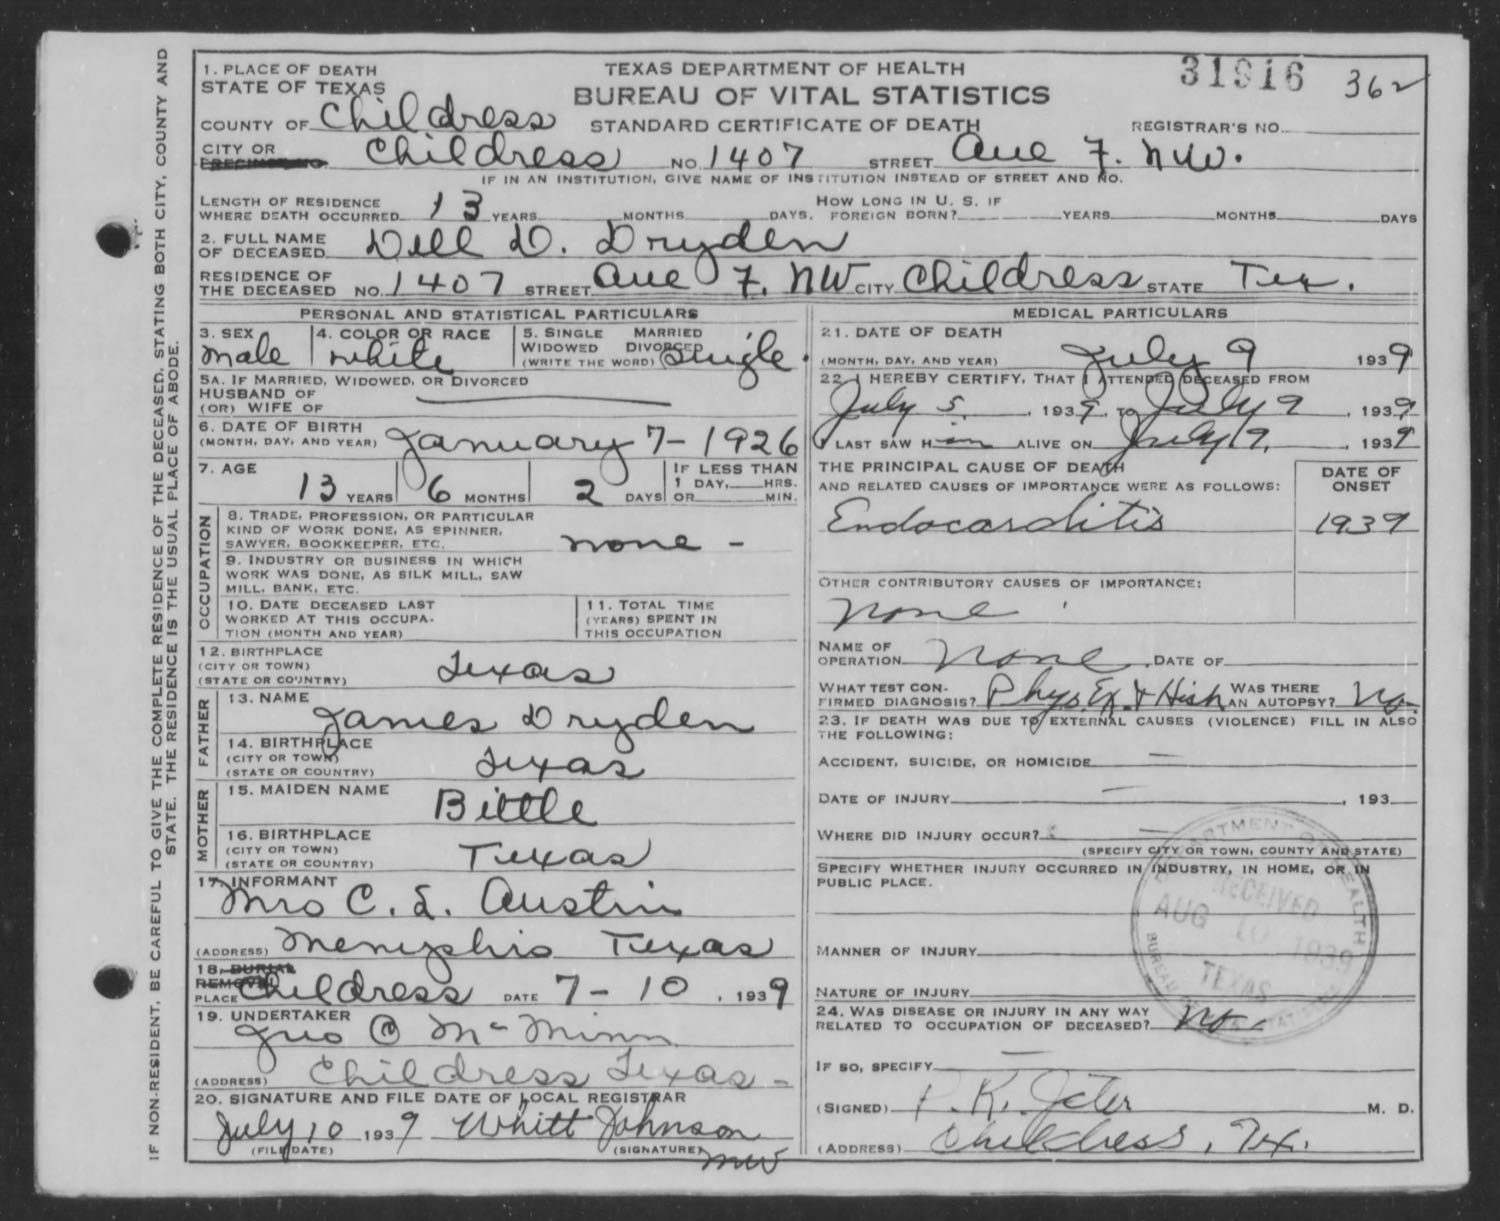 IF NON-RESIDENT, BE CAREFUL TO GIVE THE COMPLETE RESIDENCE OF THE DECEASED, STATING BOTH CITY, COUNTY AND
STATE. THE RESIDENCE IS THE USUAL PLACE OF ABODE.
1. PLACE OF DEATH
STATE OF TEXAS
TEXAS DEPARTMENT OF HEALTH
BUREAU OF VITAL STATISTICS
31916 362
COUNTY OF Childress STANDARD CERTIFICATE OF DEATH REGISTRAR'S NO.
CITY OR
PRECINCT NO. Childress NO. 1407 STREET Ave F. NW.
IF IN AN INSTITUTION, GIVE NAME OF INSTITUTION INSTEAD OF STREET AND NO.
LENGTH OF RESIDENCE HOW LONG IN U. S. IF
WHERE DEATH OCCURRED 13 YEARS MONTHS DAYS. FOREIGN BORN? YEARS MONTHS DAYS
2. FULL NAME
OF DECEASED Dell D. Dryden
RESIDENCE OF
THE DECEASED NO. 1407 STREET Ave F. NW CITY Childress STATE Tex.
PERSONAL AND STATISTICAL PARTICULARS
3. SEX 4. COLOR OR RACE 5. SINGLE MARRIED
WIDOWED DIVORCED
male white (WRITE THE WORD) Single.
5A. IF MARRIED, WIDOWED, OR DIVORCED
HUSBAND OF
(OR) WIFE OF
6. DATE OF BIRTH
(MONTH, DAY, AND YEAR) January 7-1926
7. AGE IF LESS THAN
13 YEARS 6 MONTHS 2 DAYS 1 DAY, HRS.
OR MIN.
OCCUPATION
8. TRADE, PROFESSION, OR PARTICULAR
KIND OF WORK DONE, AS SPINNER,
SAWYER, BOOKKEEPER, ETC. none -
9. INDUSTRY OR BUSINESS IN WHICH
WORK WAS DONE, AS SILK MILL, SAW
MILL, BANK, ETC.
10. DATE DECEASED LAST 11. TOTAL TIME
WORKED AT THIS OCCUPA- (YEARS) SPENT IN
TION (MONTH AND YEAR) THIS OCCUPATION
12. BIRTHPLACE
(CITY OR TOWN)
(STATE OR COUNTRY) Texas
FATHER
13. NAME
James Dryden
14. BIRTHPLACE
(CITY OR TOWN)
(STATE OR COUNTRY) Texas
MOTHER
15. MAIDEN NAME
Bittle
16. BIRTHPLACE
(CITY OR TOWN)
(STATE OR COUNTRY) Texas
17. INFORMANT
Mrs C. L. Austin
(ADDRESS) Memphis Texas
18. BURIAL
REMOVAL
PLACE Childress DATE 7-10, 1939
19. UNDERTAKER
Geo C McMinn
(ADDRESS) Childress Texas -
20. SIGNATURE AND FILE DATE OF LOCAL REGISTRAR
July 10 1939 Whitt Johnson
(FILE DATE) (SIGNATURE) mw
MEDICAL PARTICULARS
21. DATE OF DEATH
(MONTH, DAY, AND YEAR) July 9 1939
22. I HEREBY CERTIFY, THAT I ATTENDED DECEASED FROM
July 5, 1939, TO July 9, 1939
I LAST SAW Him ALIVE ON July 9, 1939
THE PRINCIPAL CAUSE OF DEATH DATE OF
AND RELATED CAUSES OF IMPORTANCE WERE AS FOLLOWS: ONSET
Endocarditis 1939
OTHER CONTRIBUTORY CAUSES OF IMPORTANCE:
None
NAME OF
OPERATION None DATE OF
WHAT TEST CON- WAS THERE
FIRMED DIAGNOSIS? Phys. Ex. & Hish AN AUTOPSY? No.
23. IF DEATH WAS DUE TO EXTERNAL CAUSES (VIOLENCE) FILL IN ALSO
THE FOLLOWING:
ACCIDENT, SUICIDE, OR HOMICIDE —
DATE OF INJURY —, 193
WHERE DID INJURY OCCUR? —
(SPECIFY CITY OR TOWN, COUNTY AND STATE)
SPECIFY WHETHER INJURY OCCURRED IN INDUSTRY, IN HOME, OR IN
PUBLIC PLACE.
MANNER OF INJURY
NATURE OF INJURY
24. WAS DISEASE OR INJURY IN ANY WAY
RELATED TO OCCUPATION OF DECEASED? No.
IF SO, SPECIFY —
(SIGNED) P. K. Jeter M. D.
(ADDRESS) Childress, Tex.
DEPARTMENT OF HEALTH
RECEIVED
AUG 10 1939
TEXAS
BUREAU OF VITAL STATISTICS